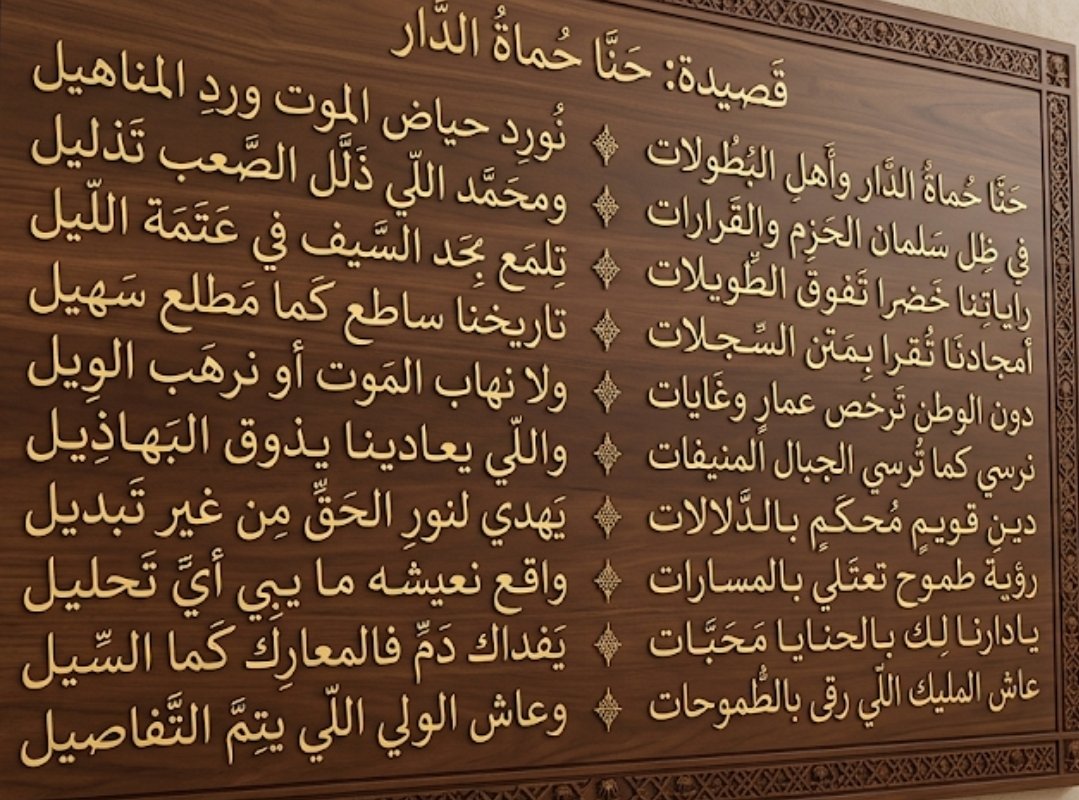 قَصيدة: حَنَّا حُماةُ الدَّار
حَنَّا حُماةُ الدَّار وأَهلِ البُطُولات نُورِد حياض الموت وردِ المناهيل
في ظِل سَلمان الحَزِم والقَرارات ومحَمَّد اللّي ذَلَّل الصَّعب تَذليل
راياتِنا خَضرا تَفوق الطِّويلات تِلمَع بِحَد السَّيف في عَتَمَة اللّيل
أمجادنَا تُقرا بِمَتن السِّجلات تاريخنا ساطع كَما مَطلع سَهيل
دون الوطن تَرخص عمارٍ وغَايات ولا نهاب المَوت أو نرهَب الوِيل
نرسي كما تُرسي الجبال المنيفات واللّي يعادينا يذوق البَهاذِيل
دينٍ قويمٍ مُحكَمٍ بالدَّلالات يَهدي لنورِ الحَقِّ مِن غير تَبديل
رؤية طموح تعتَلي بالمسارات واقع نعيشه ما يبِي أيَّ تَحليل
يادارنا لِك بالحنايا مَحَبَّات يَفداك دَمِّ فالمعارِك كَما السِّيل
عاش المليك اللّي رقى بالطُّموحات وعاش الولي اللّي يتِمَّ التَّفاصيل